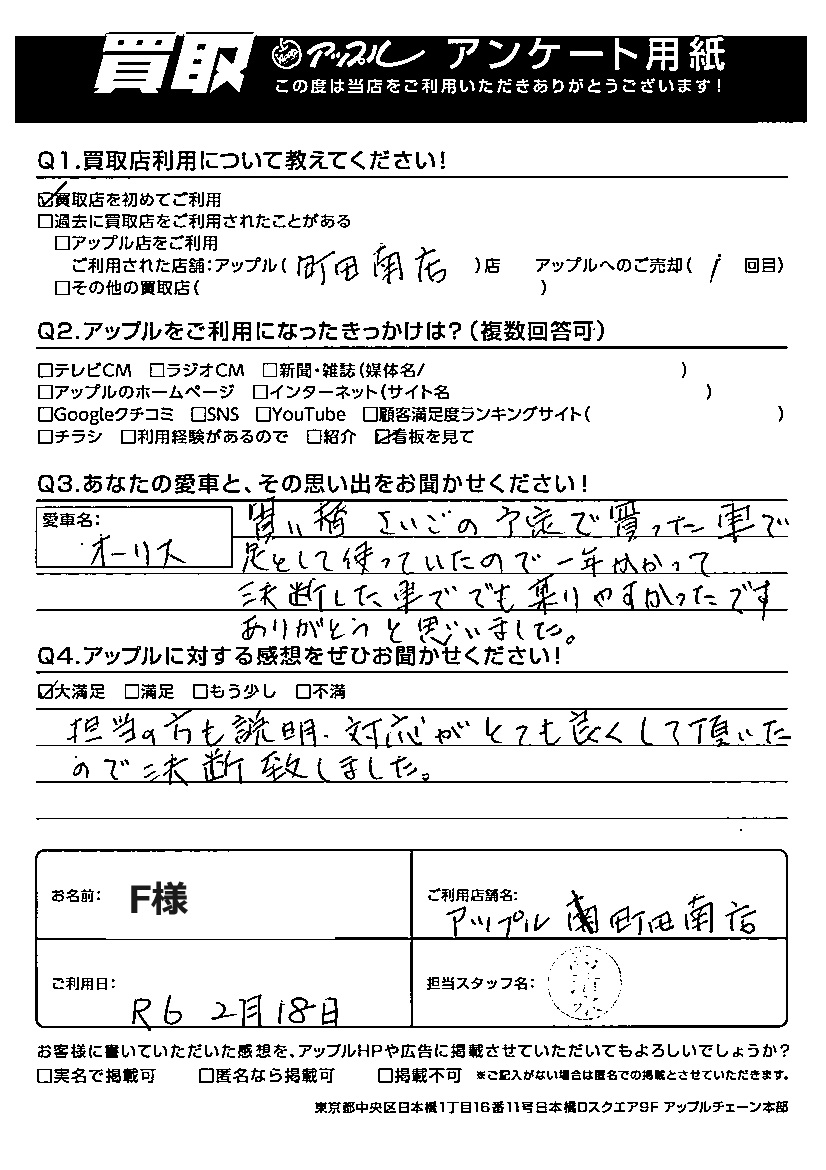 買取 アップル アンケート用紙
この度は当店をご利用いただきありがとうございます!
Q1.買取店利用について教えてください!
☑買取店を初めてご利用
□過去に買取店をご利用されたことがある
□アップル店をご利用
ご利用された店舗:アップル( 町田南店 )店 アップルへのご売却( 1 回目)
□その他の買取店( )
Q2.アップルをご利用になったきっかけは?(複数回答可)
□テレビCM □ラジオCM □新聞・雑誌(媒体名/ )
□アップルのホームページ □インターネット(サイト名 )
□Googleクチコミ □SNS □YouTube □顧客満足度ランキングサイト( )
□チラシ □利用経験があるので □紹介 ☑看板を見て
Q3.あなたの愛車と、その思い出をお聞かせください!
愛車名:
オーリス
買い替 さいごの予定で買った車で
足として使っていたので一年かかって
決断した車ででも乗りやすかったです
ありがとうと思いました。
Q4.アップルに対する感想をぜひお聞かせください!
☑大満足 □満足 □もう少し □不満
担当の方も説明、対応がとても良くして頂いた
ので決断致しました。
お名前: F様
ご利用店舗名:
アップル 町田南店
ご利用日: R6 2月18日
担当スタッフ名:
お客様に書いていただいた感想を、アップルHPや広告に掲載させていただいてもよろしいでしょうか?
□実名で掲載可 □匿名なら掲載可 □掲載不可 ※ご記入がない場合は匿名での掲載とさせていただきます。
東京都中央区日本橋1丁目16番11号日本橋Dスクエア9F アップルチェーン本部